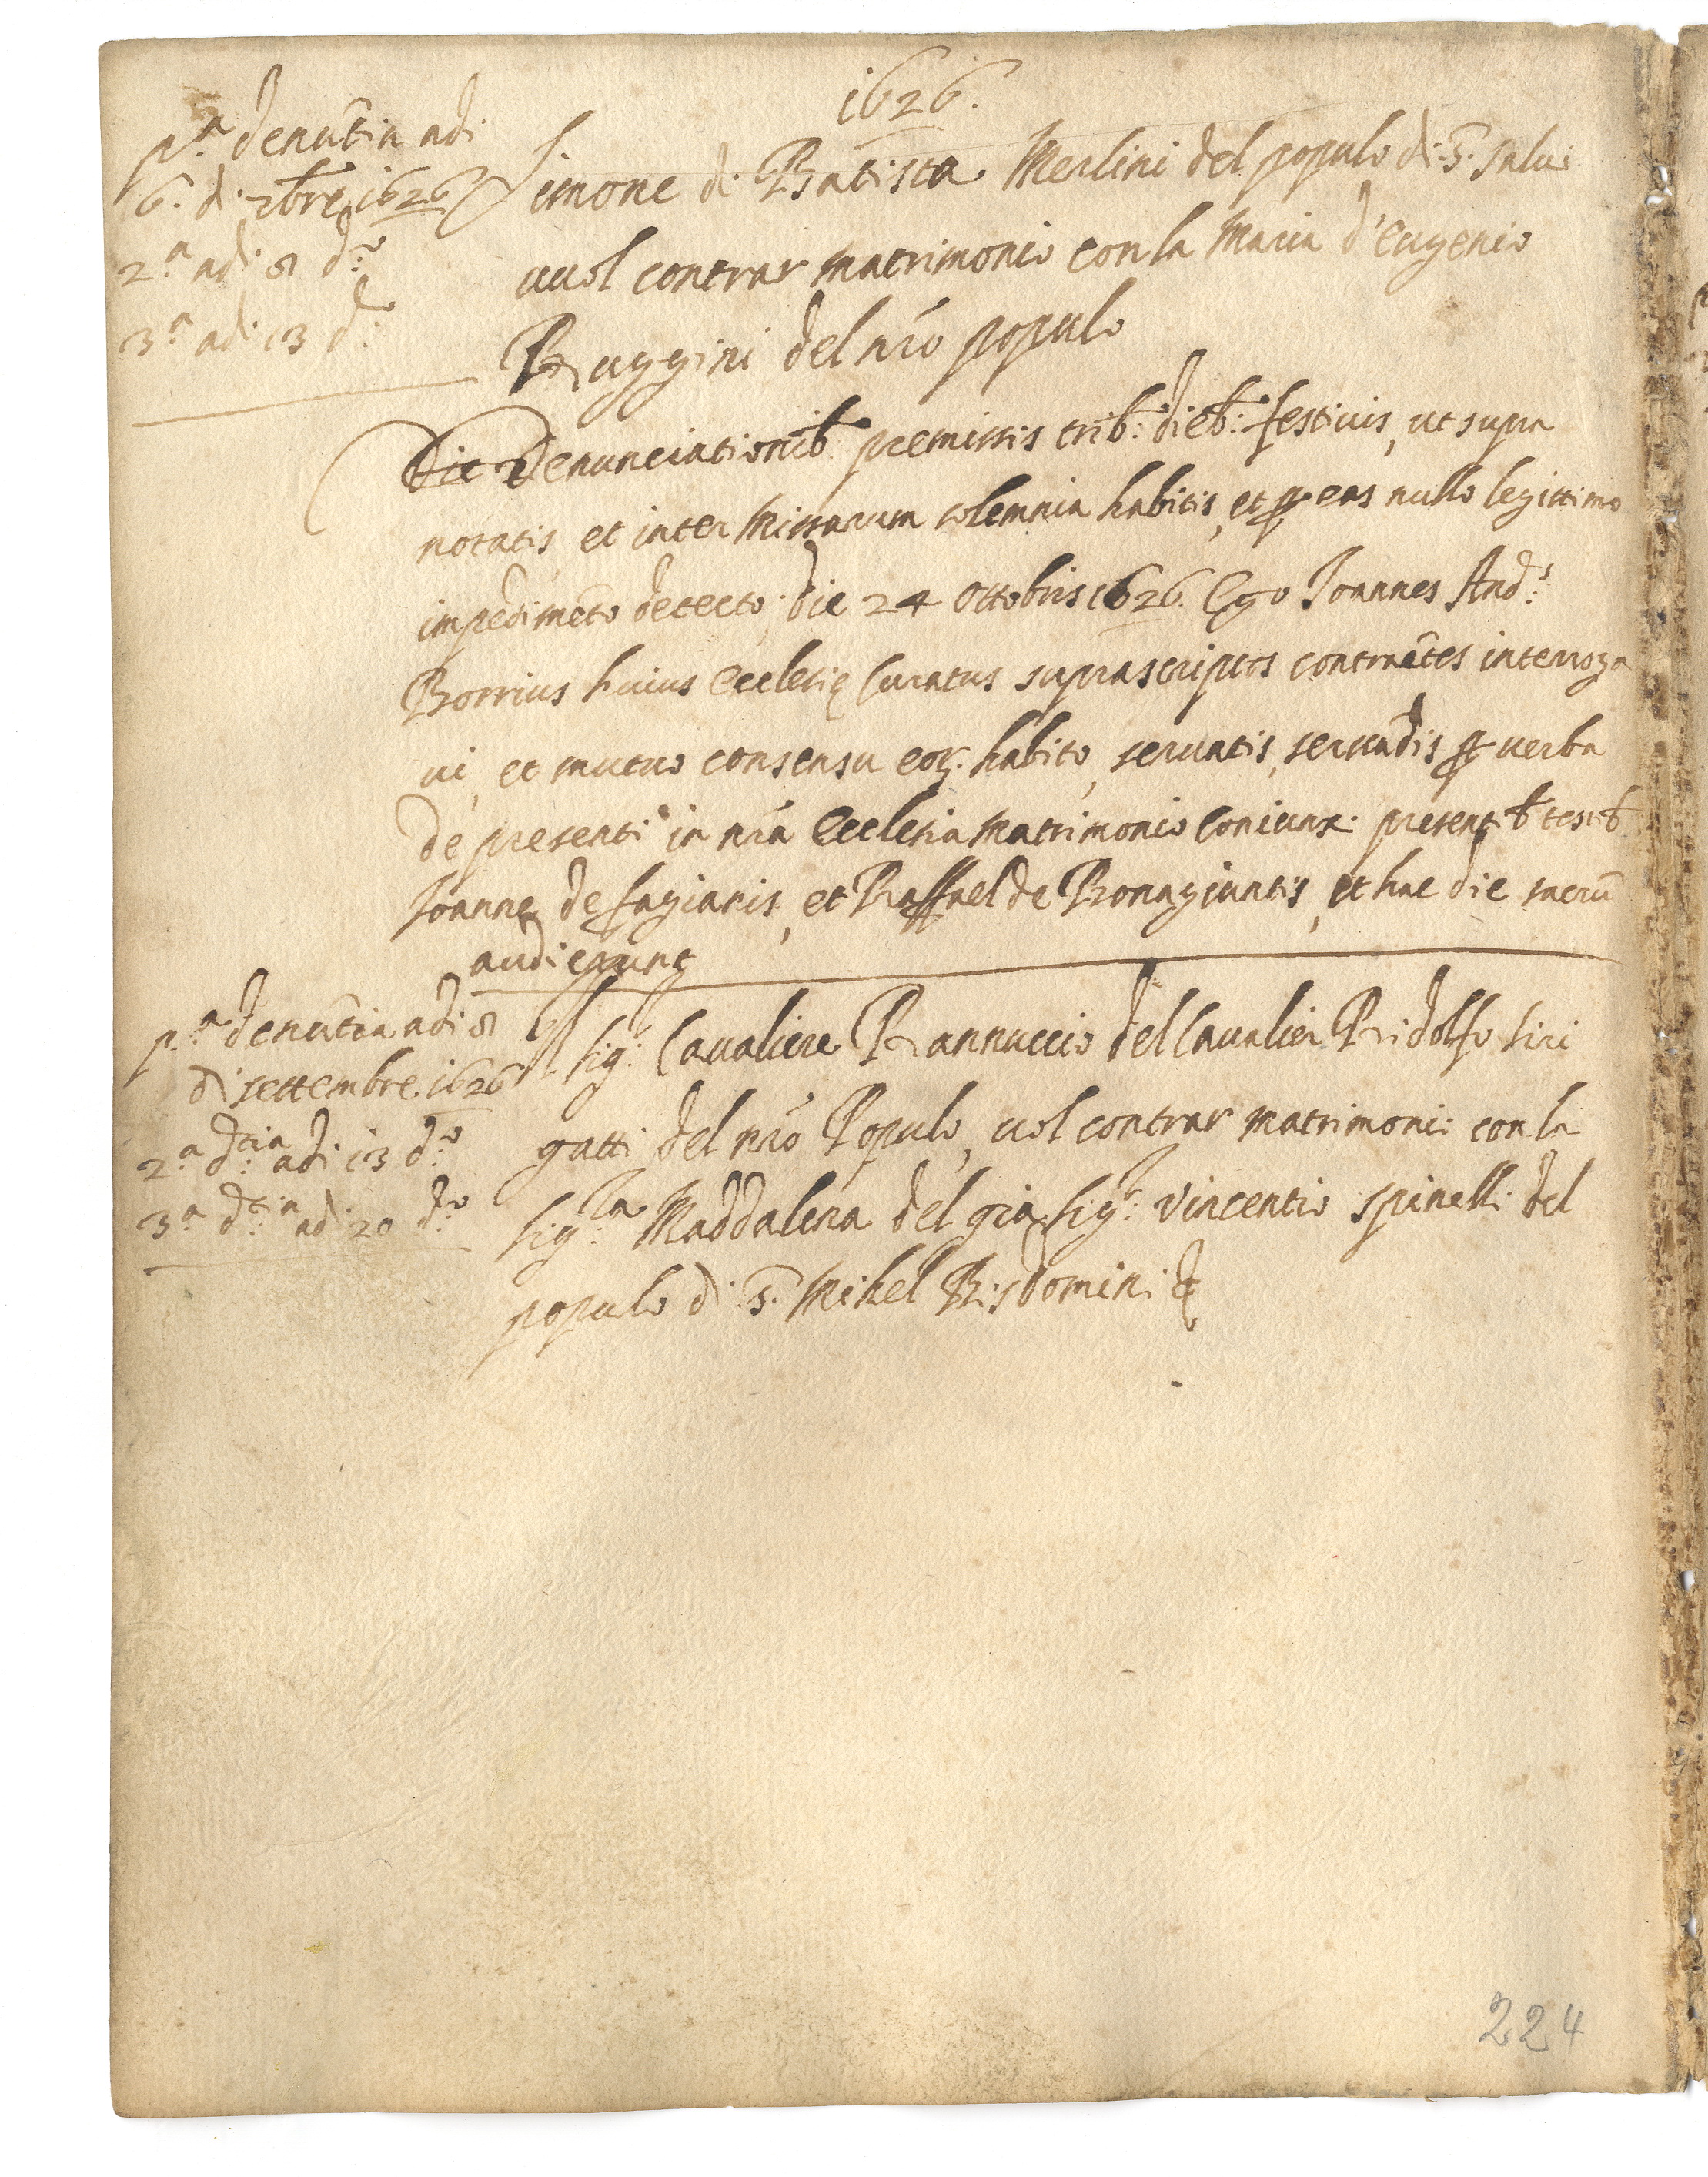 1626.
p.ª denũtia adi
6. di 7bre 1626
2.ª adi 8 d.º
3.ª adi 13 d.º
Simone di Batista Merlini del populo di S. Salui
vuol contrar matrimonio con la Maria d'Eugenio
Ruggini del nr̃o populo
Die Denunciationib. premissis trib: dieb: festiuis, ut supra
notatis, et inter Missarum solemnia habitis, et ꝑ eas nullo legittimo
impedimẽto detecto, die 24 Ottobris 1626. Ego Ioannes And:s
Borrius huius Ecclesię Curatus suprascriptos contraẽtes interroga
ui, et mutuo consensu eoꝝ. habito, seruatis, seruãdis ꝑ uerba
de presenti in nr̃a Ecclesia Matrimonio coniunx: presentib testib
Ioanne de fagianis, et Raffael de Bonagiuntis, et hac die sacrũ
audierunt
p.ª denũtia adi 8
di settembre. 1626
2.ª d:tia adi 13 d.º
3.ª d:tia adi 20 d.º
Il Sig: Caualiere Rannuccio del Caualier Ridolfo Siri
gatti del nr̃o Populo, uol contrar matrimoni: con la
Sig:ra Maddalena del già Sig:r Vincentio Spinelli del
populo di S. Mihel Bisdomini &
224